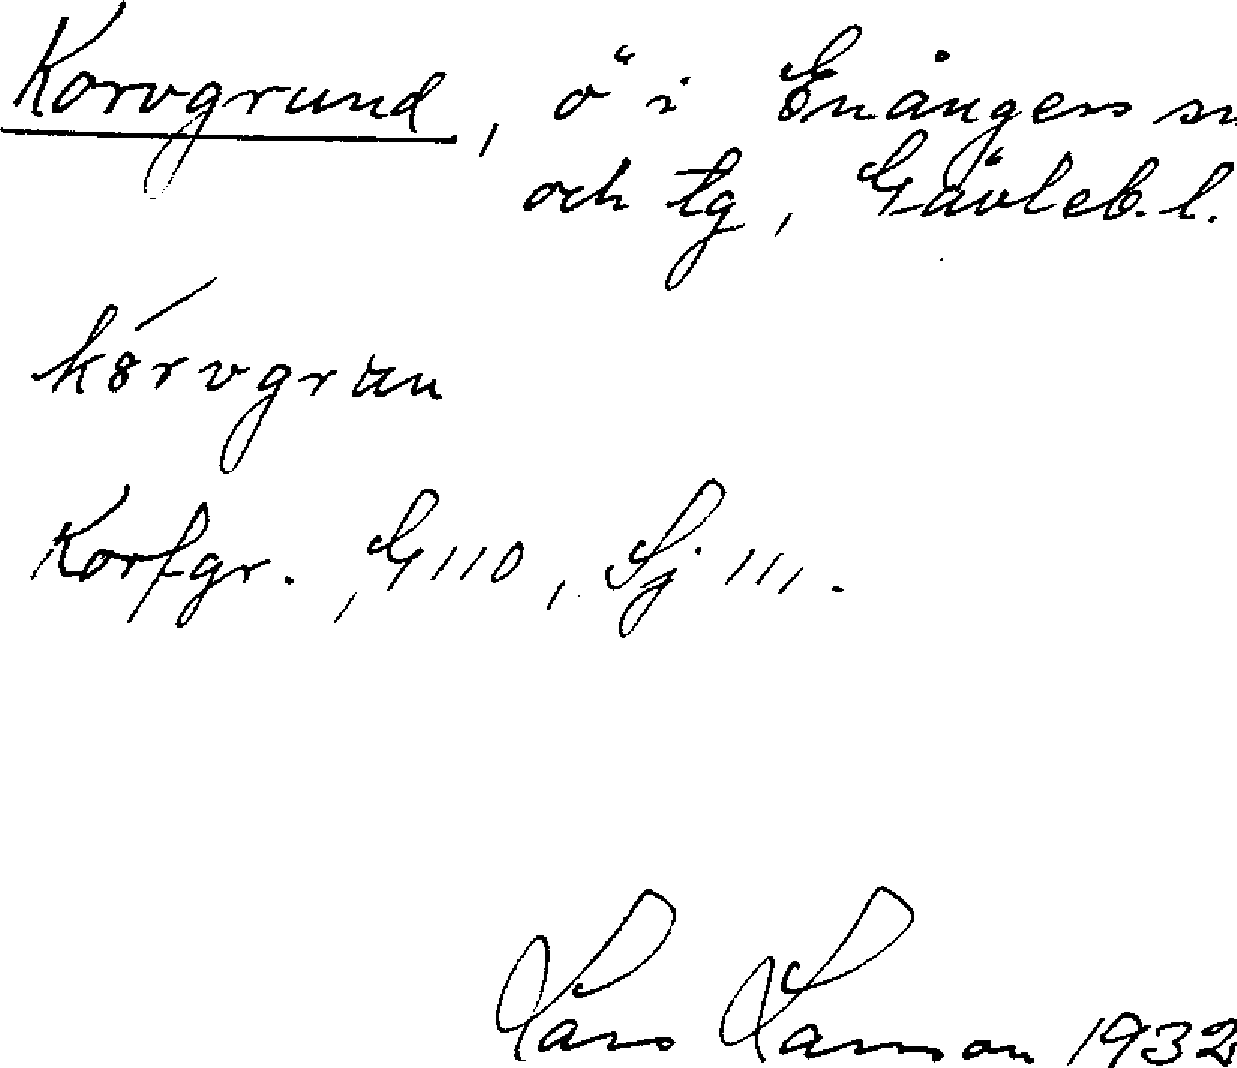 Korvgrund, ö i Enångers sn
och tg, Gävleb. l.
kørvgrun
Korfgr., G 110, Sj 111.
Lars Larsson 1932